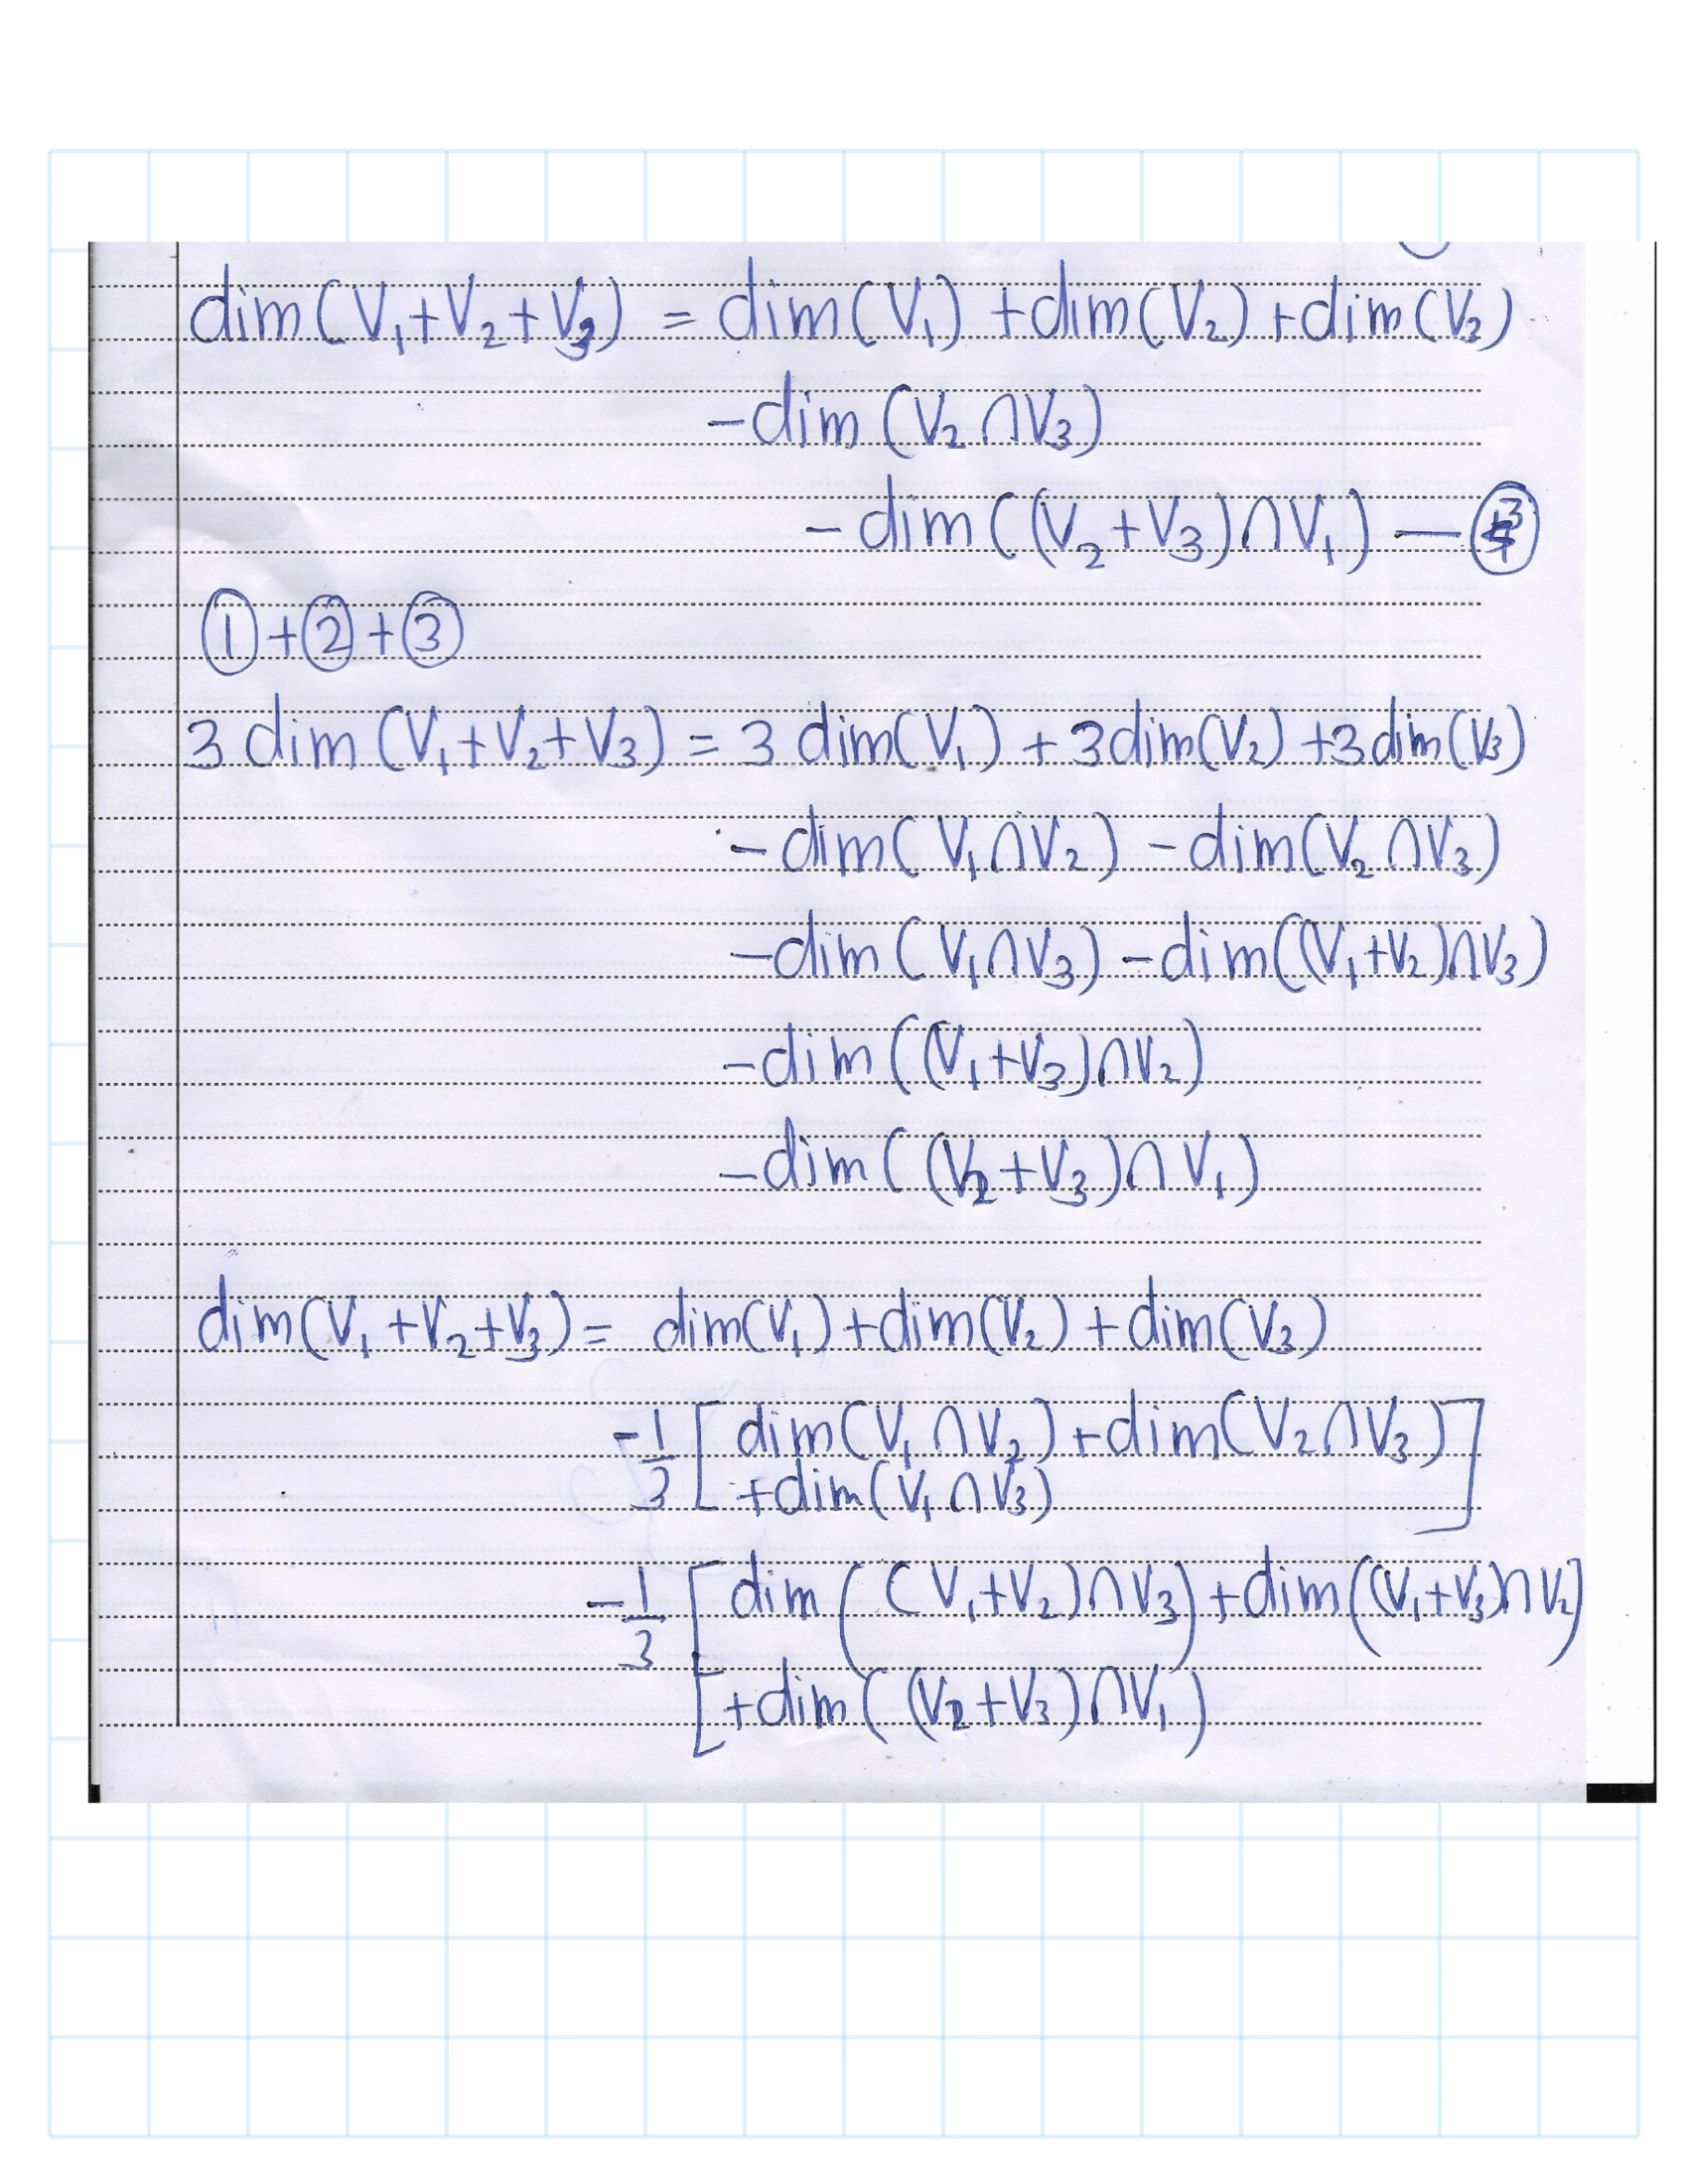 dim(V₁+V₂+V₃) = dim(V₁) +dim(V₂) +dim(V₃)
-dim (V₂∩V₃)
-dim ((V₂+V₃)∩V₁) — ③
①+②+③
3 dim (V₁+V₂+V₃) = 3 dim(V₁) + 3dim(V₂) +3dim(V₃)
-dim(V₁∩V₂) -dim(V₂∩V₃)
-dim(V₁∩V₃) -dim((V₁+V₂)∩V₃)
-dim((V₁+V₃)∩V₂)
-dim((V₂+V₃)∩V₁)
dim(V₁+V₂+V₃) = dim(V₁)+dim(V₂)+dim(V₃)
-1/3 [dim(V₁∩V₂)+dim(V₂∩V₃)
+dim(V₁∩V₃)]
-1/3 [dim((V₁+V₂)∩V₃)+dim((V₁+V₃)∩V₂)
+dim((V₂+V₃)∩V₁)